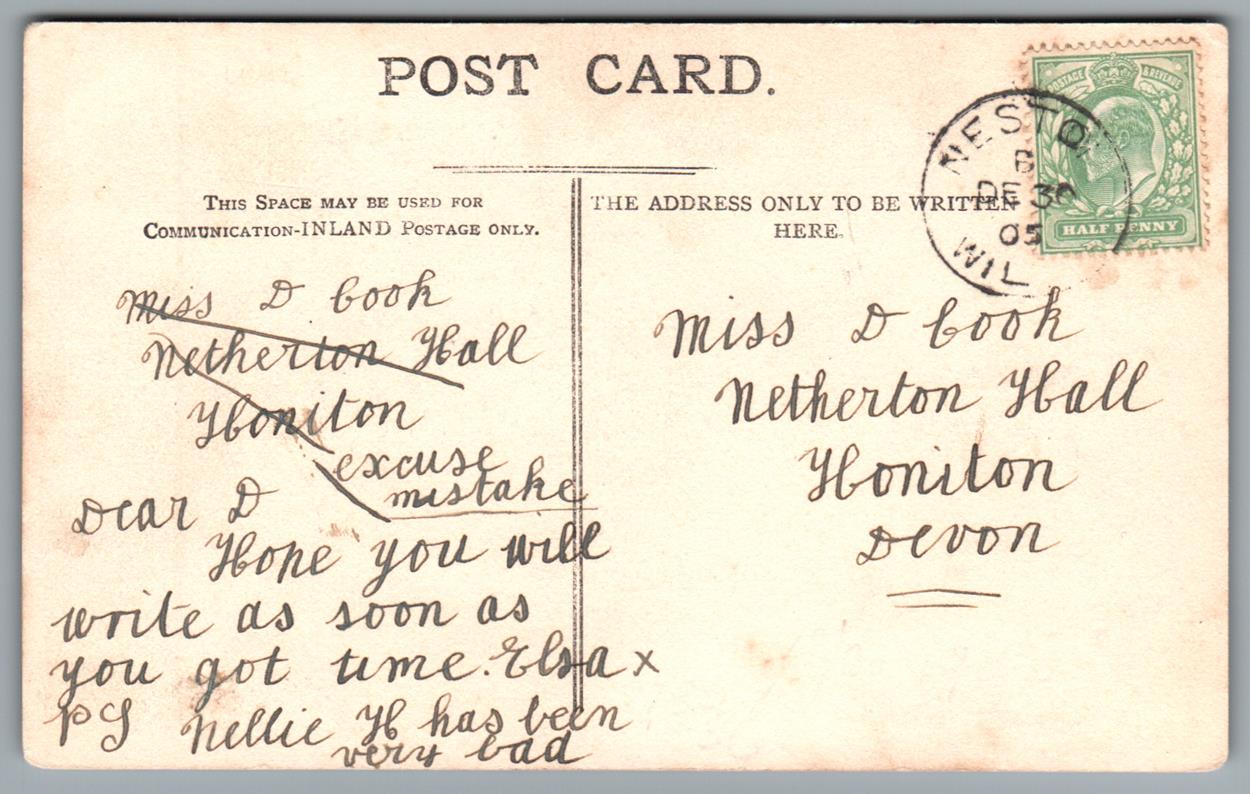 POST CARD.
THIS SPACE MAY BE USED FOR
COMMUNICATION-INLAND POSTAGE ONLY.
Miss D Cook
Netherton Hall
Honiton
excuse
mistake
Dear D
Hope you will
write as soon as
you got time. Elsa x
PS Nellie H has been
very bad
THE ADDRESS ONLY TO BE WRITTEN
HERE.
Miss D Cook
Netherton Hall
Honiton
Devon
POSTAGE & REVENUE
HALF PENNY
NESTO
B
DE 30
05
WIL